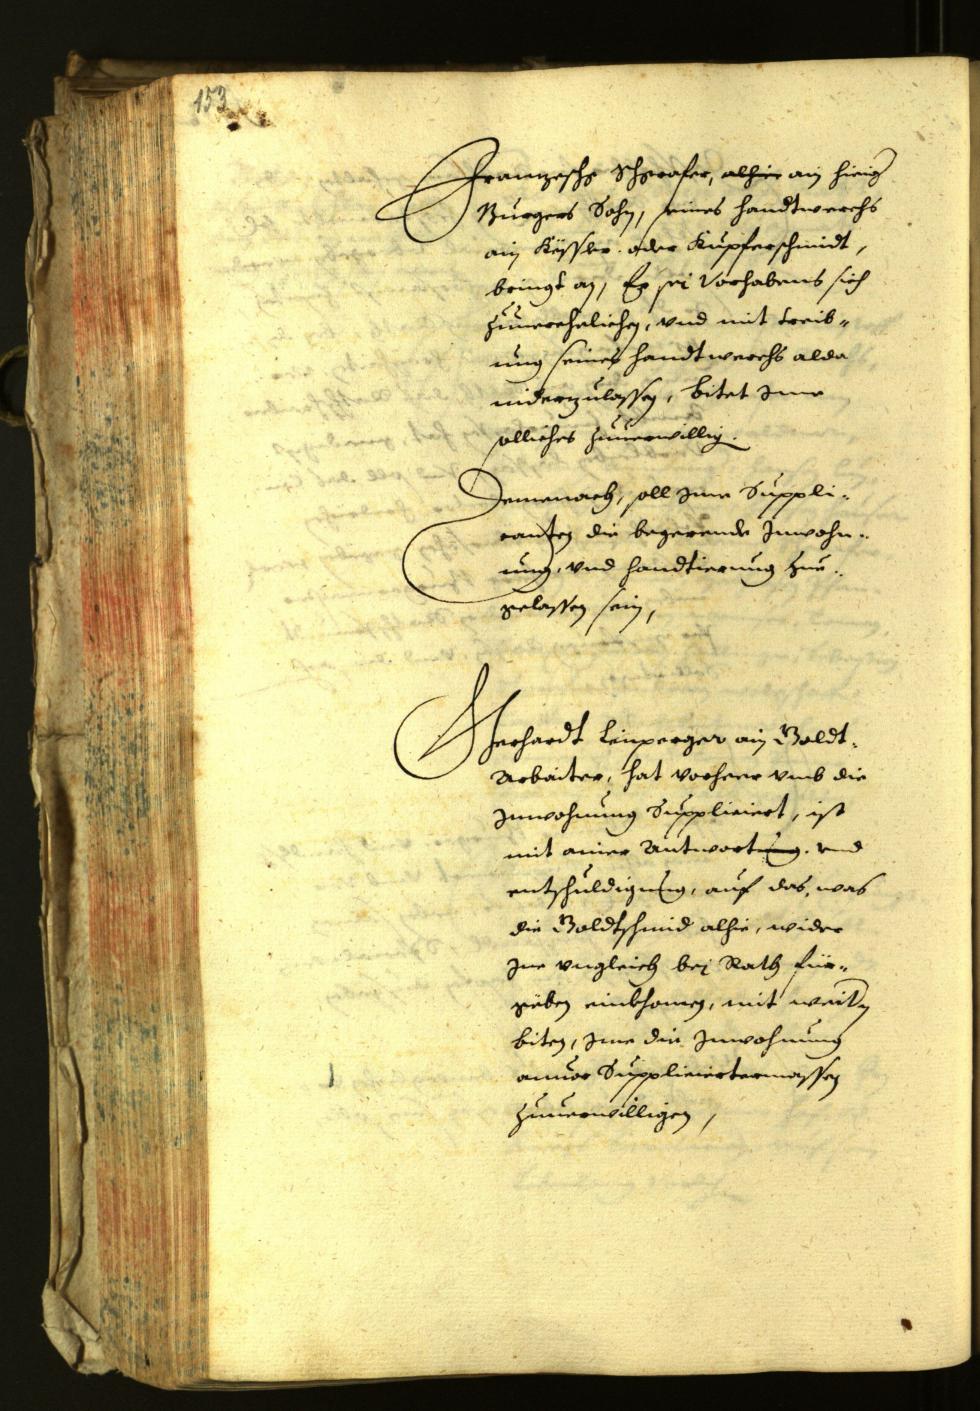 153
Franzesch Schgrafer, alhier ain hieigs
Burgers Sohn, seines handtwerchs
ain Kessler oder Kupferschmidt,
bringt an, Er sei Vorhabens sich
zuuerehelichen, vnd mit treib-
ung seines handtwerchs alda
niderzulassen, bitet Ime
solliches zuuerwillig.
Demenach, soll Ime Suppli-
canten die begerende Inwohn-
ung, vnd handtierung zue-
gelassen sein,
Gerhardt ain Goldt-
Arbaiter, hat vorheer vmb die
Inwohnung Suppliciert, ist
mit ainer Antwort vnd
entschuldigung, auf das, was
die Goldtschmid alhie, wider
Ine vngleich bej Rath für-
geben einkhomen, mit weitn
biten, Ime die Inwohnung
anuor Suppliciertermassen
zuuerwilligen,